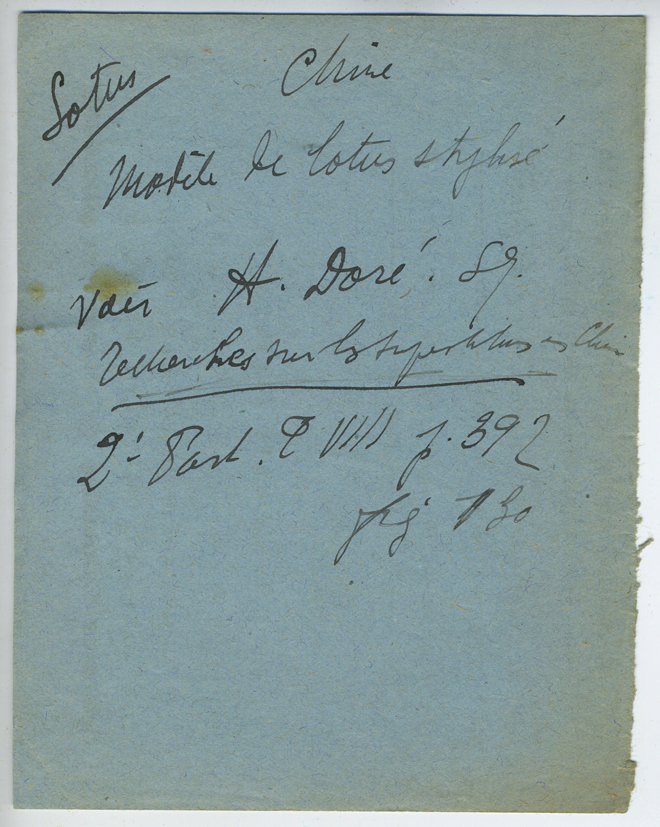 Lotus
Chine
Modèle de lotus stylisé
Voir H. Doré. SJ.
recherches sur les superstitions en Chine
2è Part. T VIII p. 392
fig 130